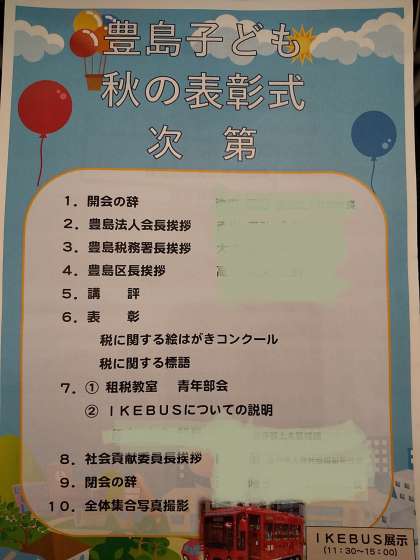 豊島子ども
秋の表彰式
次 第
1．開会の辞
2．豊島法人会長挨拶
3．豊島税務署長挨拶
4．豊島区長挨拶
5．講 評
6．表 彰
税に関する絵はがきコンクール
税に関する標語
7．① 租税教室 青年部会
② IKEBUSについての説明
8．社会貢献委員長挨拶
9．閉会の辞
10．全体集合写真撮影
IKEBUS展示
（11：30～15：00）